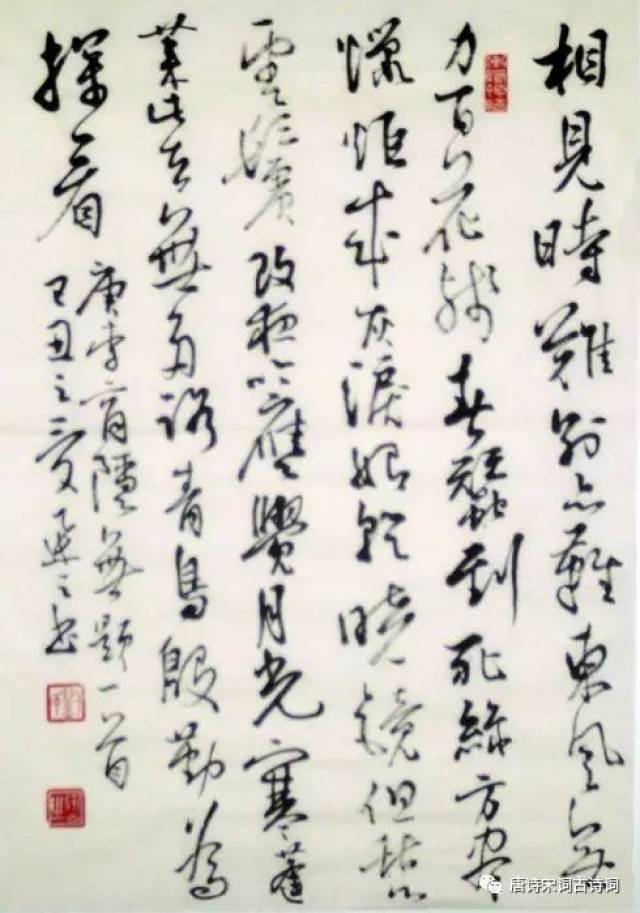 相見時難别亦難東風無
力百花殘春蠶到死絲方盡
蠟炬成灰淚始乾曉鏡但愁
雲鬢改夜吟應覺月光寒蓬
萊此去無多路青鳥殷勤為
探看
唐李商隱無題一首
己丑之夏之書
唐诗宋词古诗词